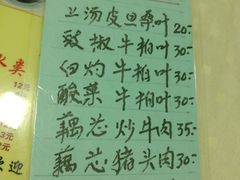 上汤皮旦桑叶20-
豉椒牛柏叶30-
白灼牛柏叶30-
酸菜牛柏叶30-
藕芯炒牛肉35-
藕芯猪头肉30-
类
12元
3元
欢迎